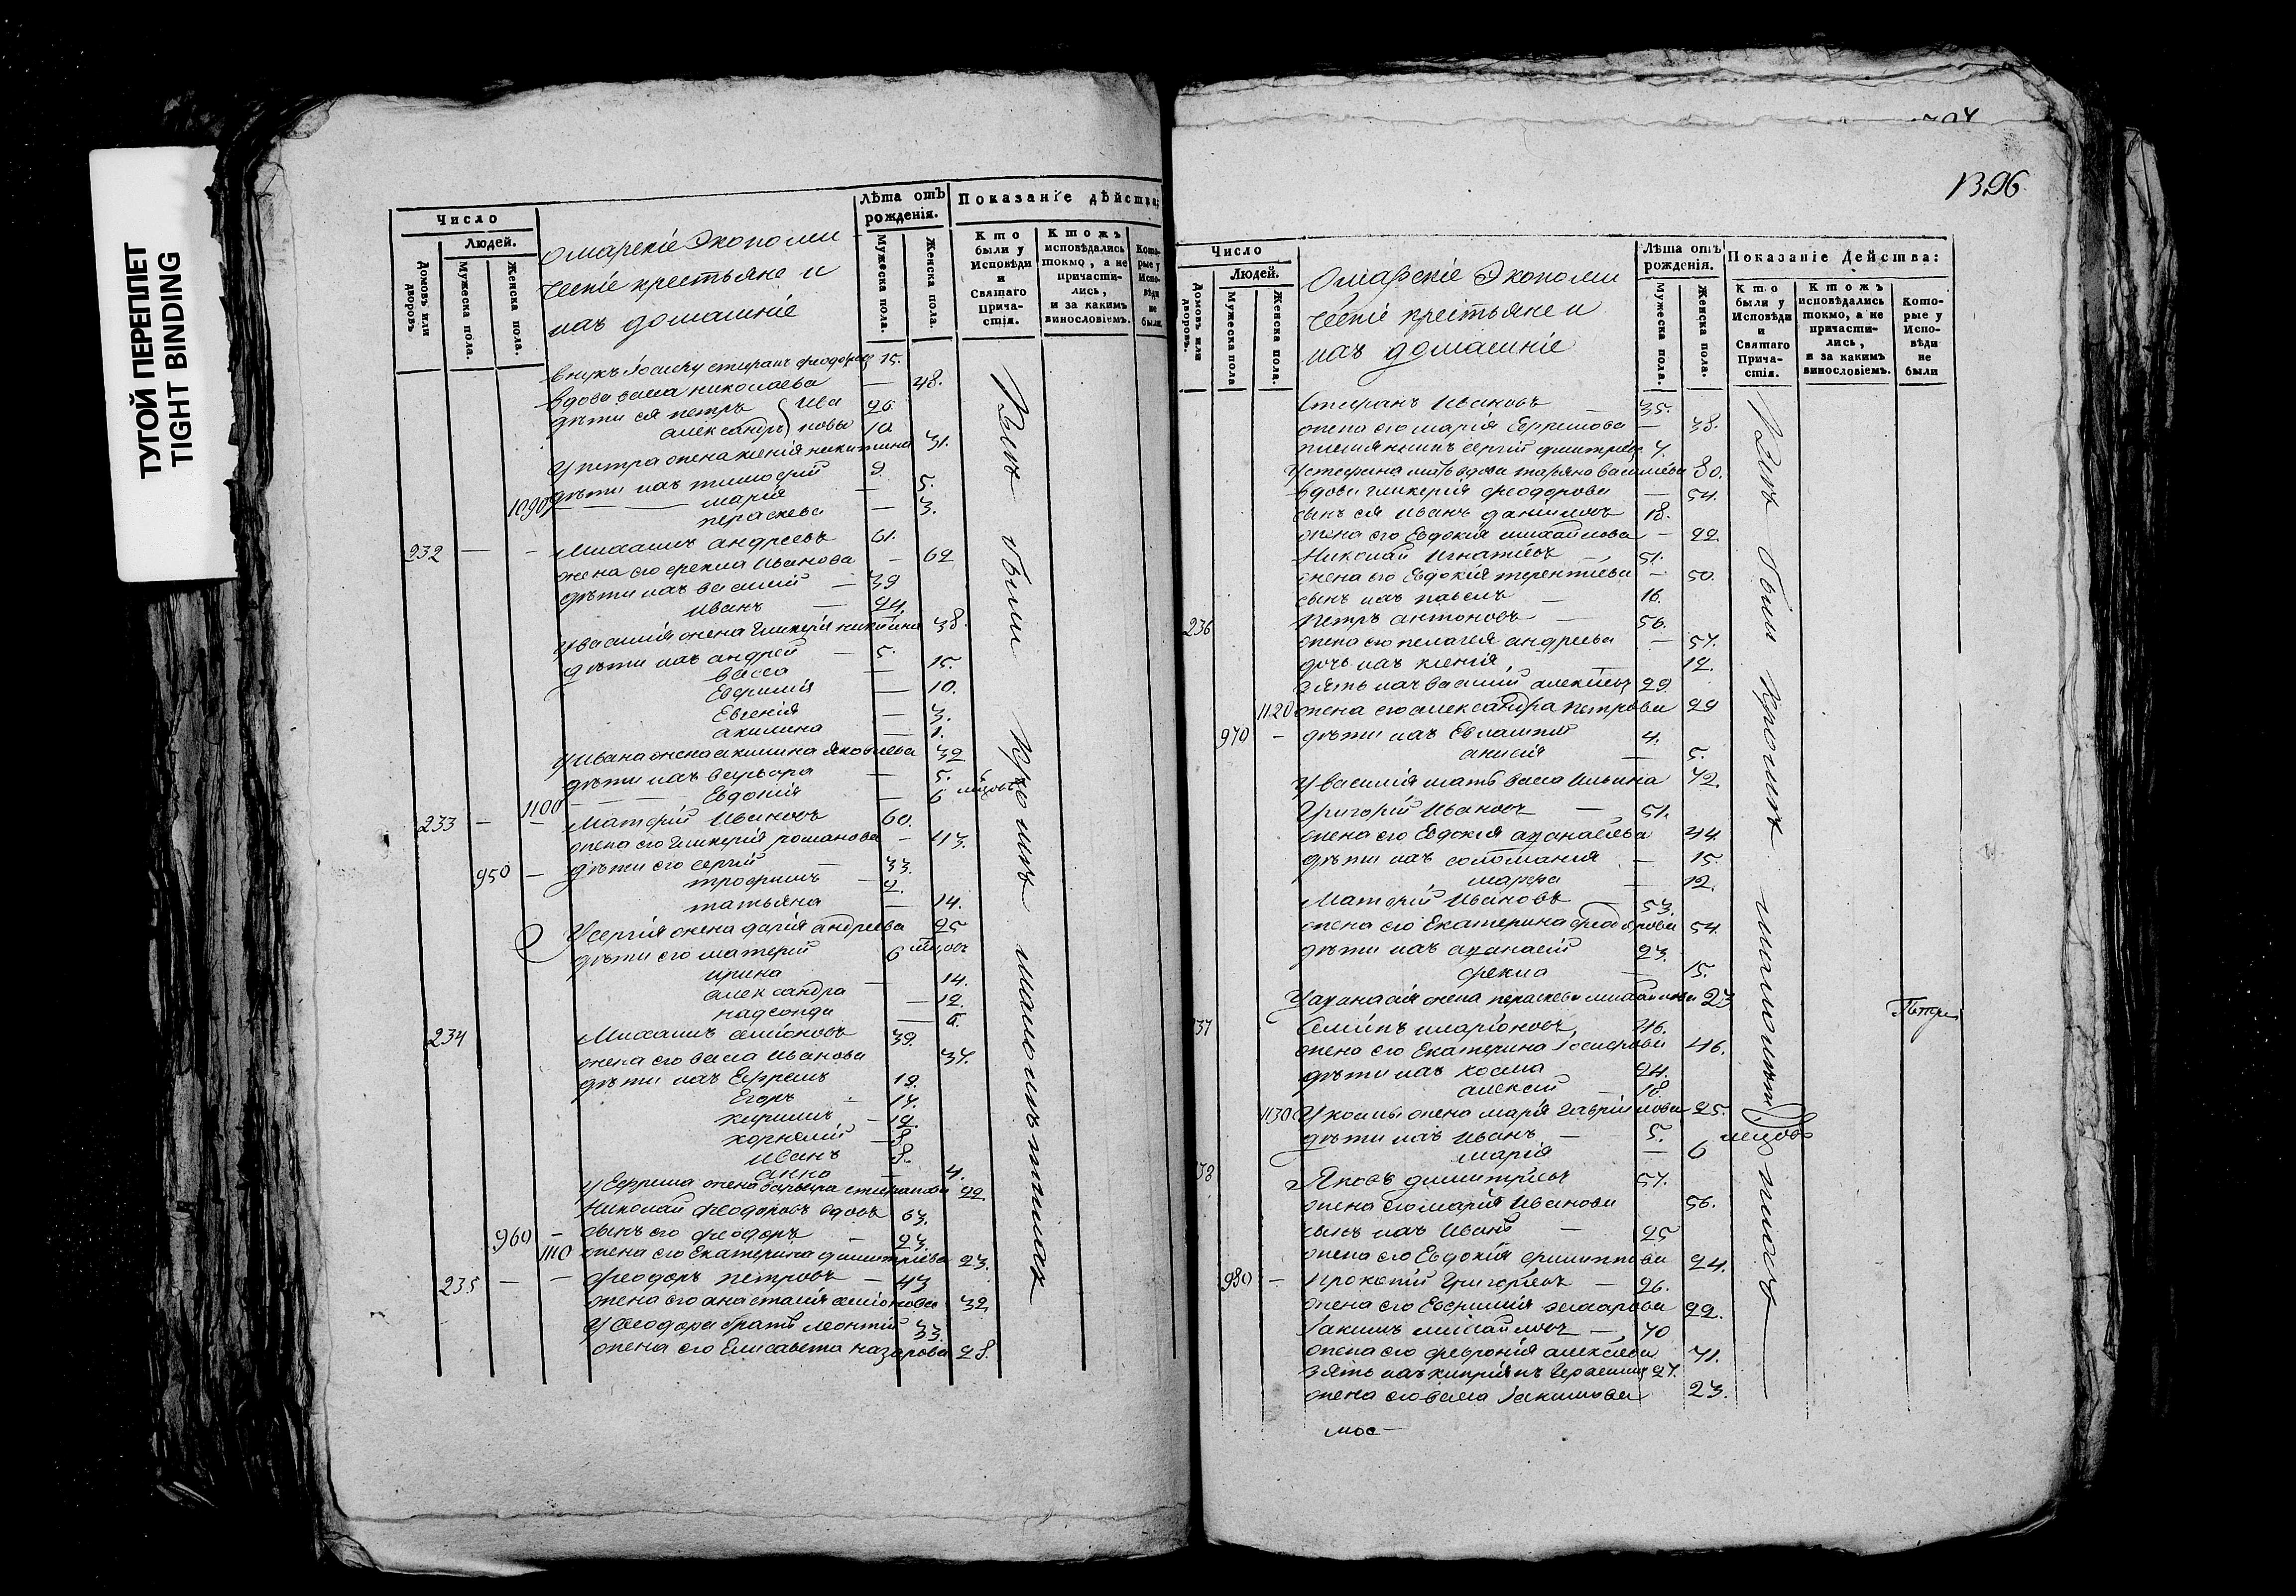 ТУГОЙ ПЕРЕПЛЕТ
TIGHT BINDING
Число
Людей.
Домовъ или дворовъ
Мужеска пола.
Женска пола.
Экономи
ческіе крестьяне и
ихъ домашніе
Лѣта отъ рожденія.
Мужеска пола.
Женска пола.
Показаніе дѣйства:
Кто были у Исповѣди и Святаго Прича-стія.
Ктожъ исповѣдались токмо, а не причасти-лись, и за какимъ винословіемъ.
Кото-рые у Испо-вѣди не были
внукъ стефанъ 15.
вдова васса николаева — 48.
дѣти ея петръ } Ива 26
александръ } новы 10
У петра жена ксенія никитина 31.
дѣти ихъ тимофей 9
1090 марія — 5.
параскева — 3.
232 — — Михаилъ андреевъ 61.
жена его фекла Иванова — 62
дѣти ихъ василій — 39
иванъ — 24.
У василія жена гликерія никитина 38.
дѣти ихъ андрей — 5.
васса — 15.
Евфимія — 10.
Евгенія — 3.
акилина — 1.
У Ивана жена акилина Яковлева 32
дѣти ихъ варвара — 5.
1100 Евдокія — 6 мѣсяцовъ
233 — — Матфей Ивановъ 60.
жена его гликерія романова — 43.
950 — дѣти его сергій — 33.
трофимъ — 2.
татьяна — 14.
У сергія жена дарія андреева 25
дѣти его матфей 6 мѣсяцовъ
ирина — 14.
александра — 12.
надежда — 6.
234 Михаилъ семіоновъ 39.
жена его васса Иванова 37.
дѣти ихъ Ефремъ 19.
Егоръ — 17.
кирилъ — 12.
корнелій — 8.
Иванъ 8.
анна — 4.
У Ефрема жена варвара стефанова 22.
Николай феодоровъ вдовъ 63.
960 — сынъ его феодоръ — 23.
1110 жена его Екатерина димитріева 23.
235 — — феодоръ петровъ — 43
жена его анастасія семіонова 32.
У феодора братъ леонтій 33.
жена его Елисавета назарова 28.
Всѣ были кромѣ малолѣтныхъ
1396
Число
Людей.
Домовъ или дворовъ.
Мужеска пола
Женска пола.
Экономи
ческіе крестьяне и
ихъ домашніе
Лѣта отъ рожденія.
Мужеска пола.
Женска пола.
Показаніе Действа:
Кто были у Исповѣди и Святаго Прича-стія.
Ктожъ исповѣдались токмо, а не причасти-лись, и за какимъ винословіемъ.
Кото-рые у Испо-вѣди не были
Стефанъ Ивановъ — 35.
жена его марія Ефремова — 38.
племянникъ сергій димитріевъ 7.
У стефана мать вдова татьяна василіева 80.
вдова гликерія феодорова — 54.
сынъ ея Иванъ даніиловъ 18.
жена его Евдокія михаилова — 22.
Николай Игнатіевъ — 51.
жена его Евдокія терентіева — 50.
сынъ ихъ павелъ — 16.
236 Петръ антоновъ — 56.
жена его пелагея андреева — 57.
дочь ихъ ксенія — 12.
зять ихъ василій алексіевъ 29.
1120 жена его александра петрова 29
970 — дѣти ихъ Евлампій 4.
анисія — 5.
У василія мать васса Ильина 72.
Григорій Ивановъ — 51.
жена его Евдокія афанасіева 44.
дѣти ихъ соломанія — 15.
марфа — 12.
Матфей Ивановъ — 53.
жена его Екатерина феодорова 54.
дѣти ихъ афанасій 23.
фекла — 15.
У афанасія жена параскева михаилова 23
37 Семіонъ иларіоновъ 46.
жена его Екатерина 46.
дѣти ихъ косма 24.
алексій 18.
1130 У космы жена марія гавріилова 25.
дѣти ихъ Иванъ — 5.
марія — 6 мѣсяцовъ
38 Яковъ димитріевъ 57.
жена его марія Иванова 56.
сынъ ихъ Иванъ — 25
жена его Евдокія филиппова 24.
980 — Прокопій Григоріевъ — 26.
жена его Евфимія 22.
Іакимъ михаиловъ — 70
жена его февронія алексіева 71.
зять ихъ 27.
жена его васса Іакимова 23.
Всѣ были кромѣ малолѣтныхъ